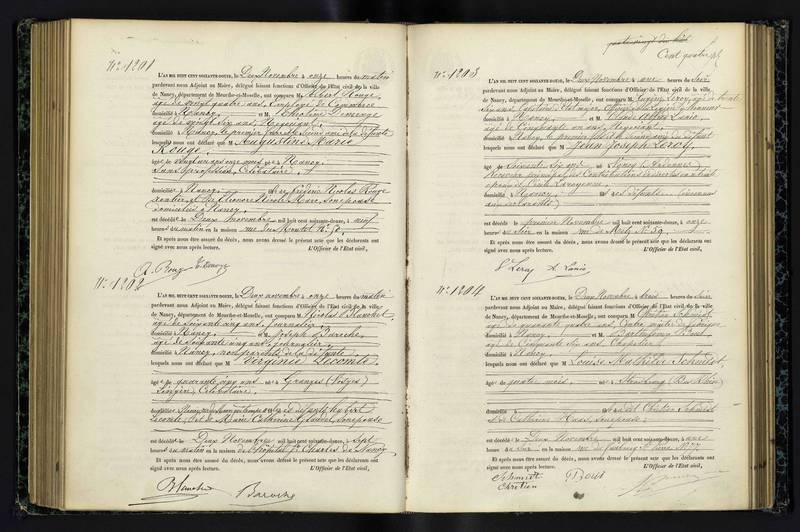 N° 1201
L'AN MIL HUIT CENT SOIXANTE-DOUZE, le Deux Novembre à onze heures du matin
pardevant nous Adjoint au Maire, délégué faisant fonctions d'Officier de l'État civil de la ville
de Nancy, département de Meurthe-et-Moselle, ont comparu M Albert Rouge
âgé de vingt quatre ans, Employé de Commerce
domicilié à Nancy et M Théotime
âgé de vingt six ans, Négociant
domicilié à Nancy, le premier frère
lesquels nous ont déclaré que M Augustine Marie
Rouge,
âgée de vingt ans née à Nancy,
sans profession, Célibataire
domiciliée à Nancy, fille de Frédéric Nicolas Rouge
rentier, et de Eléonore Nicole Marc, son épouse
domiciliés à Nancy
est décédée le Deux Novembre mil huit cent soixante-douze, à neuf
heures du matin en la maison rue du Montet N°
Et après nous être assuré du décès, nous avons dressé le présent acte que les déclarants ont
signé avec nous après lecture.
L'Officier de l'État civil,
A. Rouge
N° 1202
L'AN MIL HUIT CENT SOIXANTE-DOUZE, le Deux Novembre à onze heures du matin
pardevant nous Adjoint au Maire, délégué faisant fonctions d'Officier de l'État civil de la ville
de Nancy, département de Meurthe-et-Moselle, ont comparu M Nicolas Blanchet
âgé de soixante cinq ans, journalier
domicilié à Nancy, et Joseph Baroche
âgé de soixante cinq ans, journalier
domicilié à Nancy, non parents de la défunte
lesquels nous ont déclaré que M Virginie Lecomte
âgée de quarante cinq ans née à Granges (Vosges)
Lingère, Célibataire,
domiciliée à Nancy, fille de
Lecomte, et de Marie Catherine son épouse
est décédée le Deux Novembre mil huit cent soixante-douze, à sept
heures du matin en la maison de l'hôpital St Charles de Nancy
Et après nous être assuré du décès, nous avons dressé le présent acte que les déclarants ont
signé avec nous après lecture.
L'Officier de l'État civil,
Blanchet Baroche
Cent quatre
N° 1203
L'AN MIL HUIT CENT SOIXANTE-DOUZE, le Deux Novembre à une heure du soir
pardevant nous Adjoint au Maire, délégué faisant fonctions d'Officier de l'État civil de la ville
de Nancy, département de Meurthe-et-Moselle, ont comparu M Eugène Leroy, âgé de trente
domicilié à Nancy et M
âgé de Cinquante un ans, Négociant
domicilié à Nancy, le premier fils
lesquels nous ont déclaré que M Jean Joseph Leroy,
âgé de Soixante six ans né à (Ardennes)
Receveur principal des Contributions indirectes en retraite
domicilié à Nancy,
est décédé le premier Novembre mil huit cent soixante-douze, à onze
heures du soir en la maison rue de Metz N° 59
Et après nous être assuré du décès, nous avons dressé le présent acte que les déclarants ont
signé avec nous après lecture.
L'Officier de l'État civil,
E Leroy A. Lanio
N° 1204
L'AN MIL HUIT CENT SOIXANTE-DOUZE, le Deux Novembre à trois heures du soir
pardevant nous Adjoint au Maire, délégué faisant fonctions d'Officier de l'État civil de la ville
de Nancy, département de Meurthe-et-Moselle, ont comparu M Chrétien Schmidt
âgé de quarante quatre ans, Contre maître de fabrique
domicilié à Nancy, et
âgé de Cinquante six ans, Chapelier
domicilié à Nancy
lesquels nous ont déclaré que M Louise Mathilde Schmidt,
âgée de quatre mois, née à Strasbourg (Bas Rhin)
domiciliée à fille de Chrétien Schmidt
et de Catherine Haas, son épouse
est décédée le Deux Novembre mil huit cent soixante-douze, à une
heure du soir en la maison rue du faubourg St Pierre N°
Et après nous être assuré du décès, nous avons dressé le présent acte que les déclarants ont
signé avec nous après lecture.
L'Officier de l'État civil,
Schmidt
Chretien